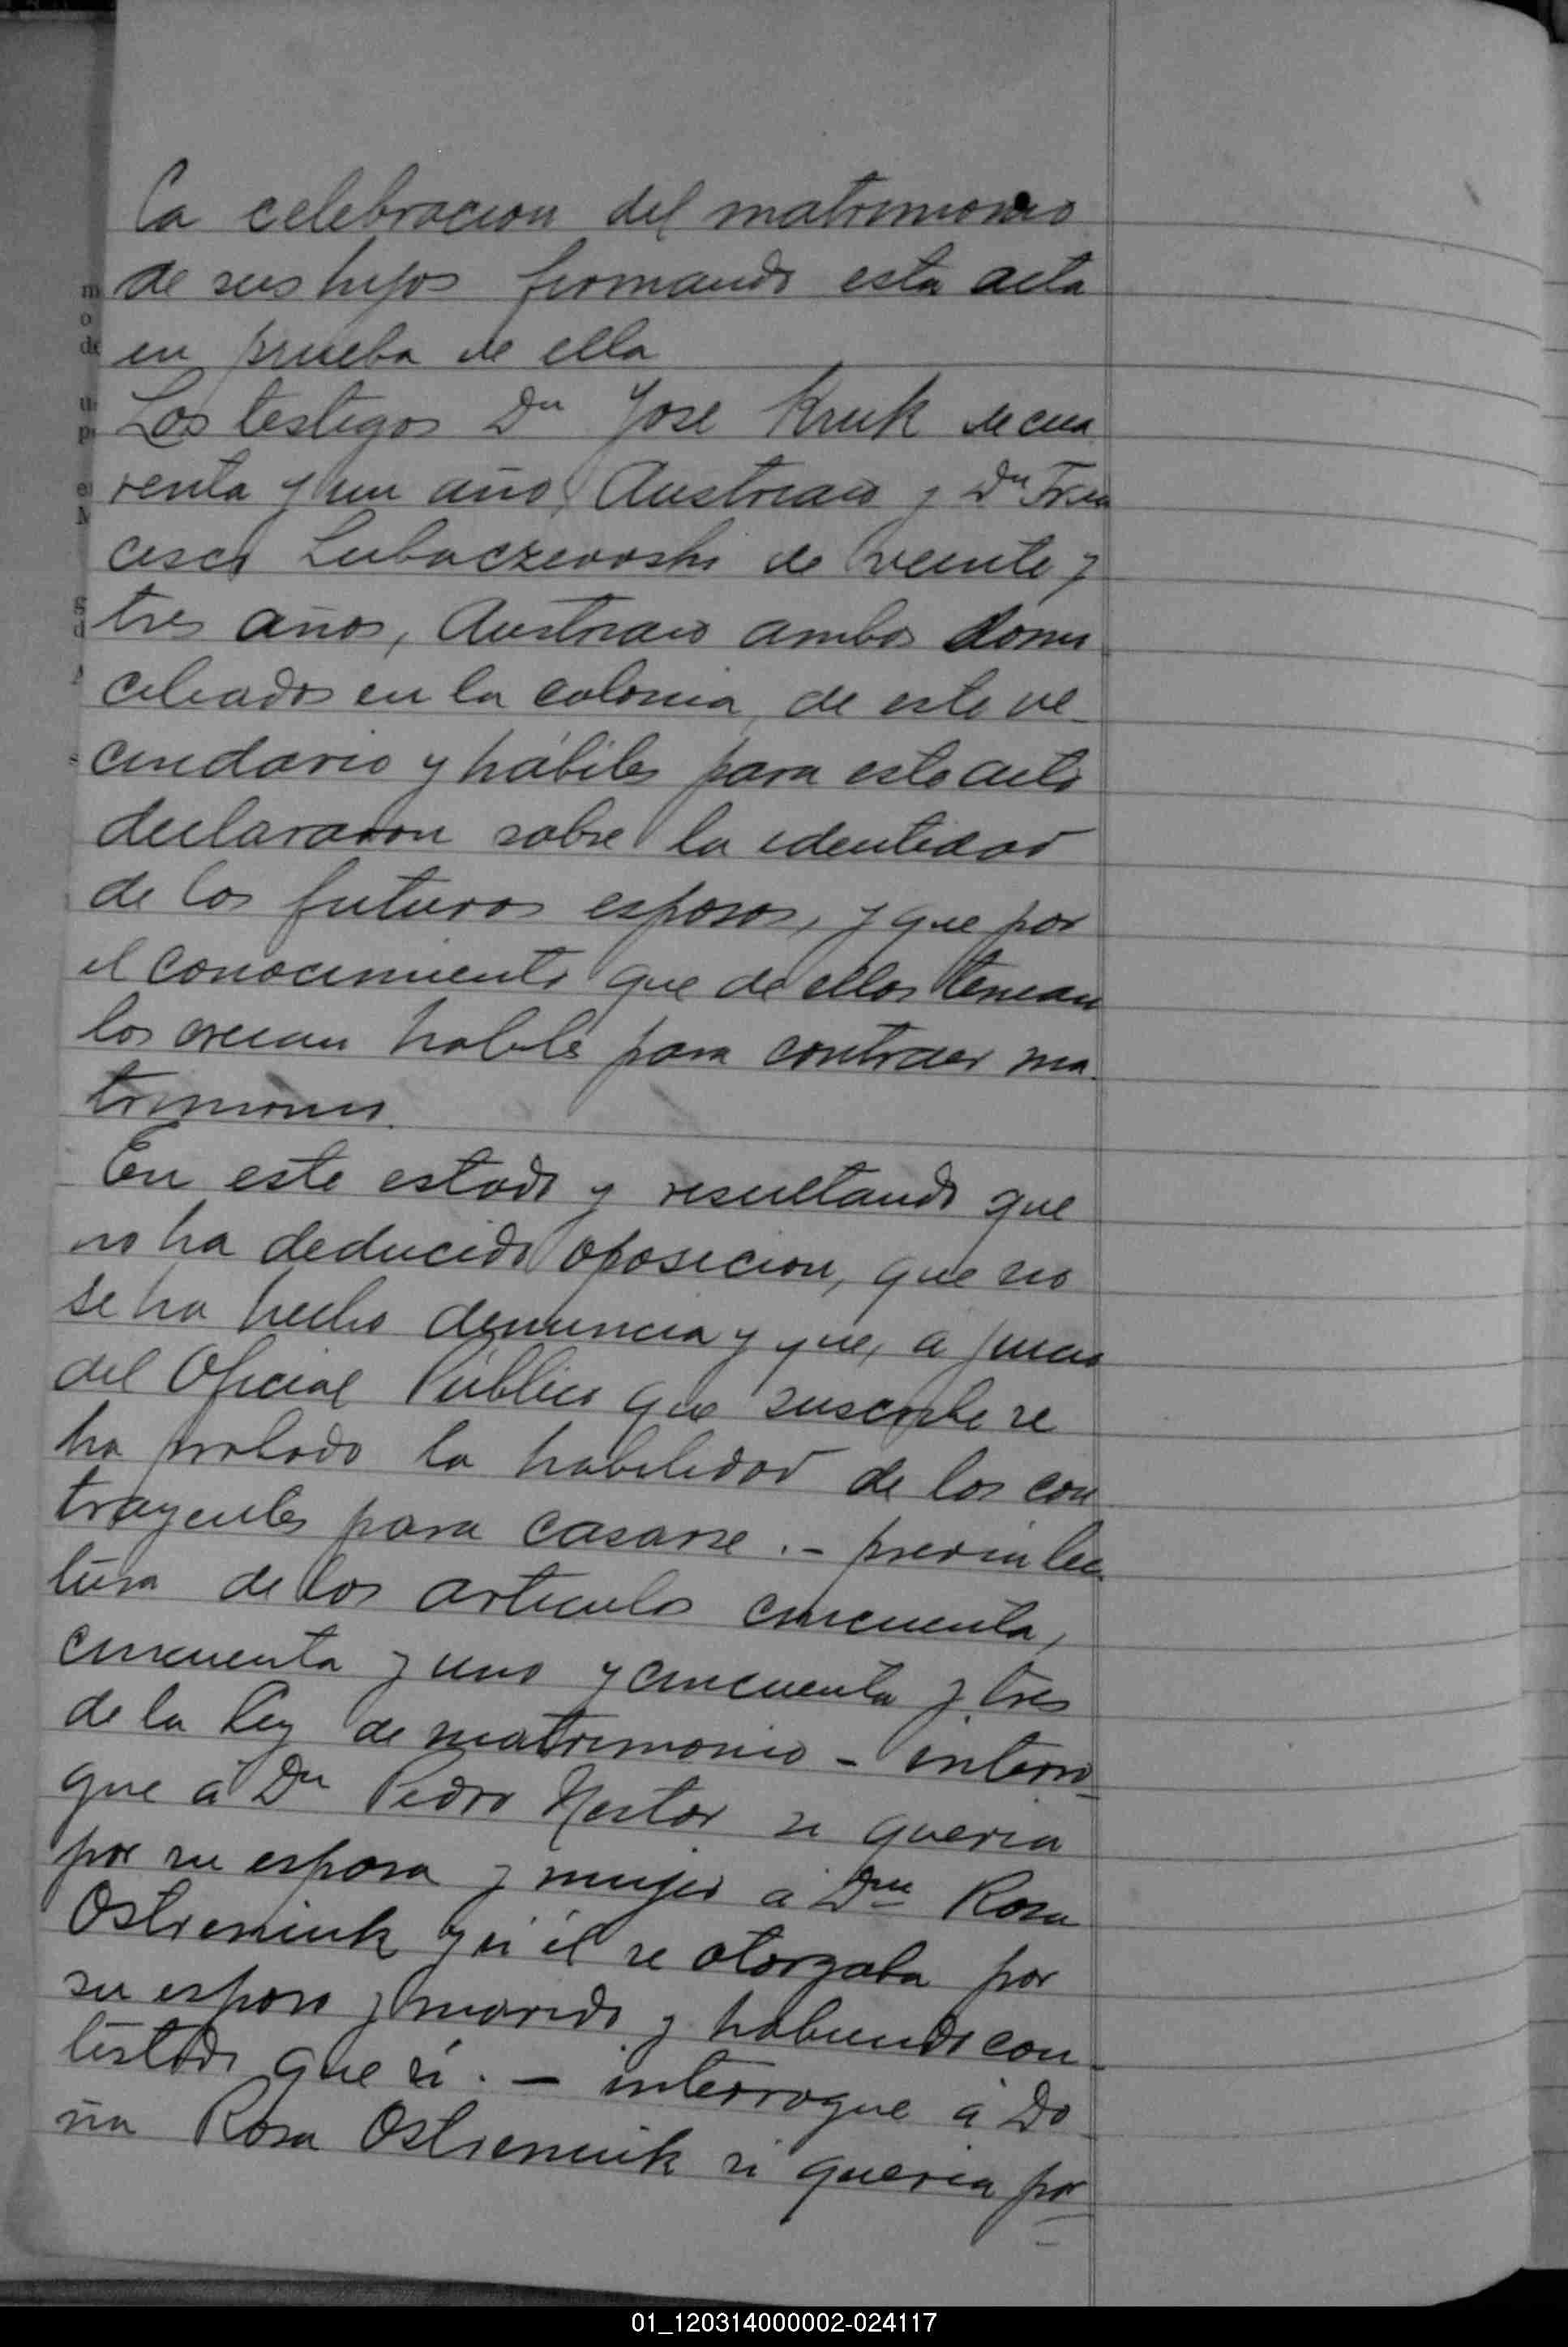 la celebracion del matrimonio
de sus hijos firmando esta acta
en prueba de ella
Los testigos Dn Jose Kruk de cua
renta y un año, Austriaco y Dn Fran
cisco Lubaczewski de veinte y
tres años, Austriaco ambos domi
ciliados en la colonia, de este ve-
cindario y hábiles para este acto
declararon sobre la identidad
de los futuros esposos, y que por
el conocimiento que de ellos tenian
los creian habiles para contraer ma-
trimonio.
En este estado y resultando que
no ha deducido oposicion, que no
se ha hecho denuncia y que, a juicio
del Oficial Público que suscribe se
ha probado la habilidad de los con
trayentes para casarse .- previa lec-
tura de los articulos cincuenta,
cincuenta y uno y cincuenta y tres
de la Ley de matrimonio - interro-
gue á Dn Pedro Nestor si queria
por su esposa y mujer á Dña Rosa
Ostreniuk y si él se otorgaba por
su esposo y marido y habiendo con-
testado que si. - interrogue á Do
ña Rosa Ostreniuk si queria por
m
o
de
p
01_120314000002-024117